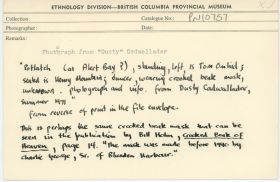 ETHNOLOGY DIVISION—BRITISH COLUMBIA PROVINCIAL MUSEUM
Collection Catalogue No.: PN10757
Photographer: Date:
Remarks:
Photograph from "Dusty" Cadwallader
"Potlatch (at Alert Bay?), standing, left is Tom Omhid;
seated is Henry Hunt; dancer, wearing crooked beak mask,
unknown. Photograph and info. from Dusty Cadwallader,
summer 1971"
from reverse of print in file envelope.
This is perhaps the same crooked beak mask that can be
seen in the publication by Bill Holm, Crooked Beak of
Heaven, page 14. "The mask was made before 1940 by
Charlie George, Sr. of Blunden Harbour."